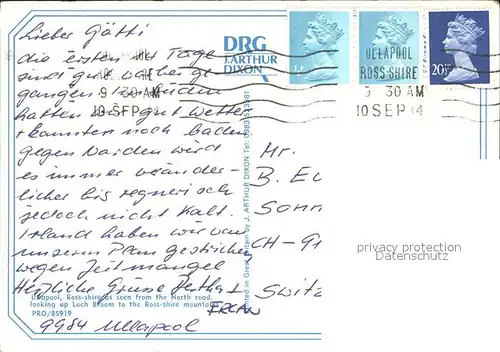 Lieber Götti
die ersten Tage
sind gut vorbei ge-
gangen. Im Süden
hatten wir gut Wetter
+ konnten noch baden
gegen Norden wird
es immer veränder-
licher bis regnerisch
jedoch nicht kalt.
Irland haben wir von
unserem Plan gestrichen
wegen Zeitmangel
Herzliche Grüsse Bertha +
FREAN
Ullapool, Ross-shire as seen from the North road,
looking up Loch Broom to the Ross-shire mountains
PRO/85919
9984 Ullapool
DRG
J. ARTHUR
DIXON
Printed in Great Britain by J. ARTHUR DIXON Tel: 0983 523381
9 30 AM
10 SEP
ULLAPOOL
ROSS-SHIRE
9 30 AM
10 SEP 84
20½P
Mr.
B.
Sonn
CH-91
Switz
privacy protection
Datenschutz